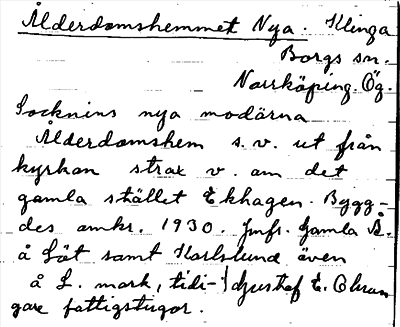 Ålderdomshemmet Nya. Klinga
Borgs sn.
Norrköping. Ög.
Socknins nya modärna
Ålderdomshem s.v. ut från
kyrkan strax v. om det
gamla stället Ekhagen. Bygg-
des omkr. 1930. Jmfr. Gamla Å.
å Löt samt Karlslund även
å L. mark, tidi- Gustaf E. Ohran
gare fattigstugor.